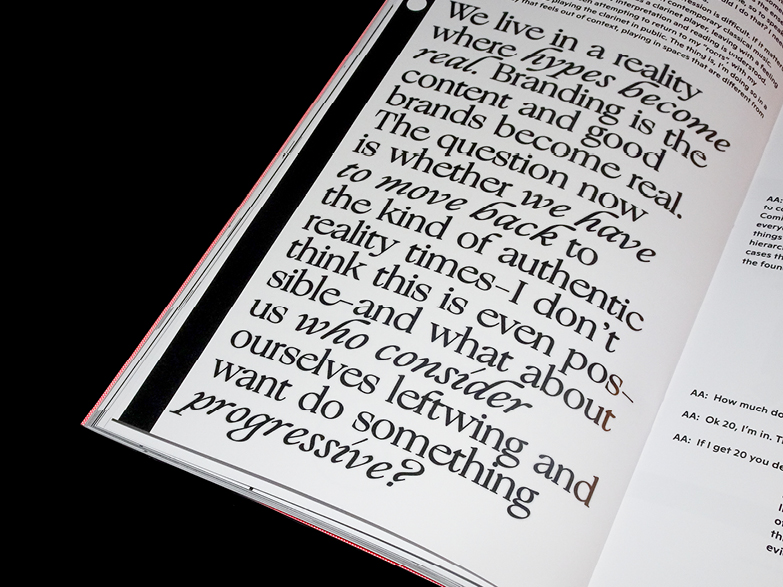 We live in a reality
where hypes become
real. Branding is the
content and good
brands become real.
The question now
is whether we have
to move back to
the kind of authentic
reality times–I don't
think this is even pos-
sible–and what about
us who consider
ourselves leftwing and
want do something
progressive?
ression is difficult. If it
contemporary classical music.
a clarinet player, leaving with a feeling
interpretation and reading is understood.
been attempting to return to my "roots" with my
playing the clarinet in public. The thing is, I'm doing so in a
that feels out of context, playing in spaces that are different from
AA:
every
things
hierarc
cases th
the foun
AA: How much do
AA: Ok 20, I'm in. T
AA: If I get 20 you de
th
evi